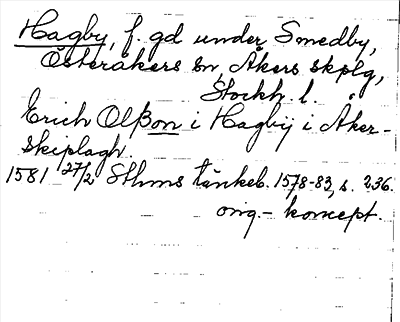 Hagby, f. gd under Smedby,
Österåkers sn, Åkers skplg,
Stockh. l.
Erich Olßon i Hagbij i Åker-
skiplagh.
1581 27/2 Sthms tänkeb. 1578-83, s. 236.
orig.- koncept.